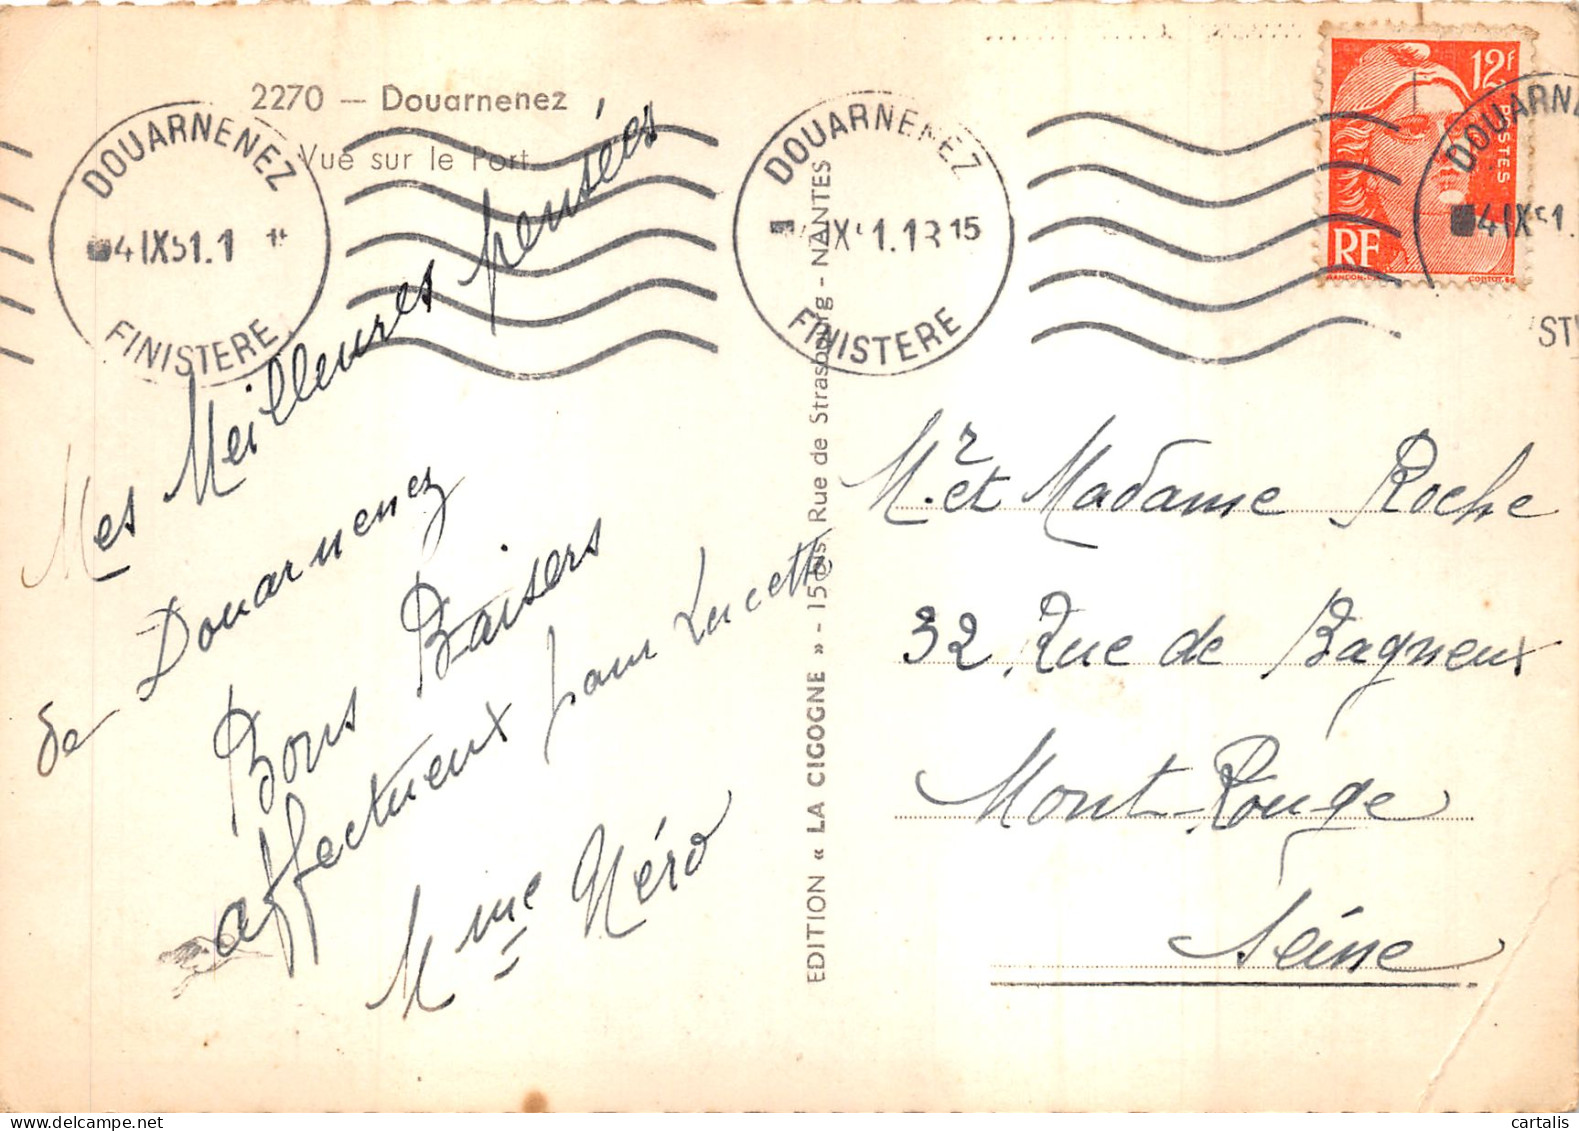 2270 — Douarnenez
Vue sur le Port
DOUARNENEZ
4 IX 51.1
FINISTERE
DOUARNENEZ
IX 1.13 15
FINISTERE
12F
POSTES
RF
DOUARNE
4 IX 51.
Mes Meilleures pensées
de Douarnenez
Bons Baisers
affectueux pour Lucette
Mme Néro
EDITION « LA CIGOGNE » - 15 bis, Rue de Strasbourg - NANTES
Mr. et Madame Roche
32, Rue de Bagneux
Mont-Rouge
Seine
cartalis